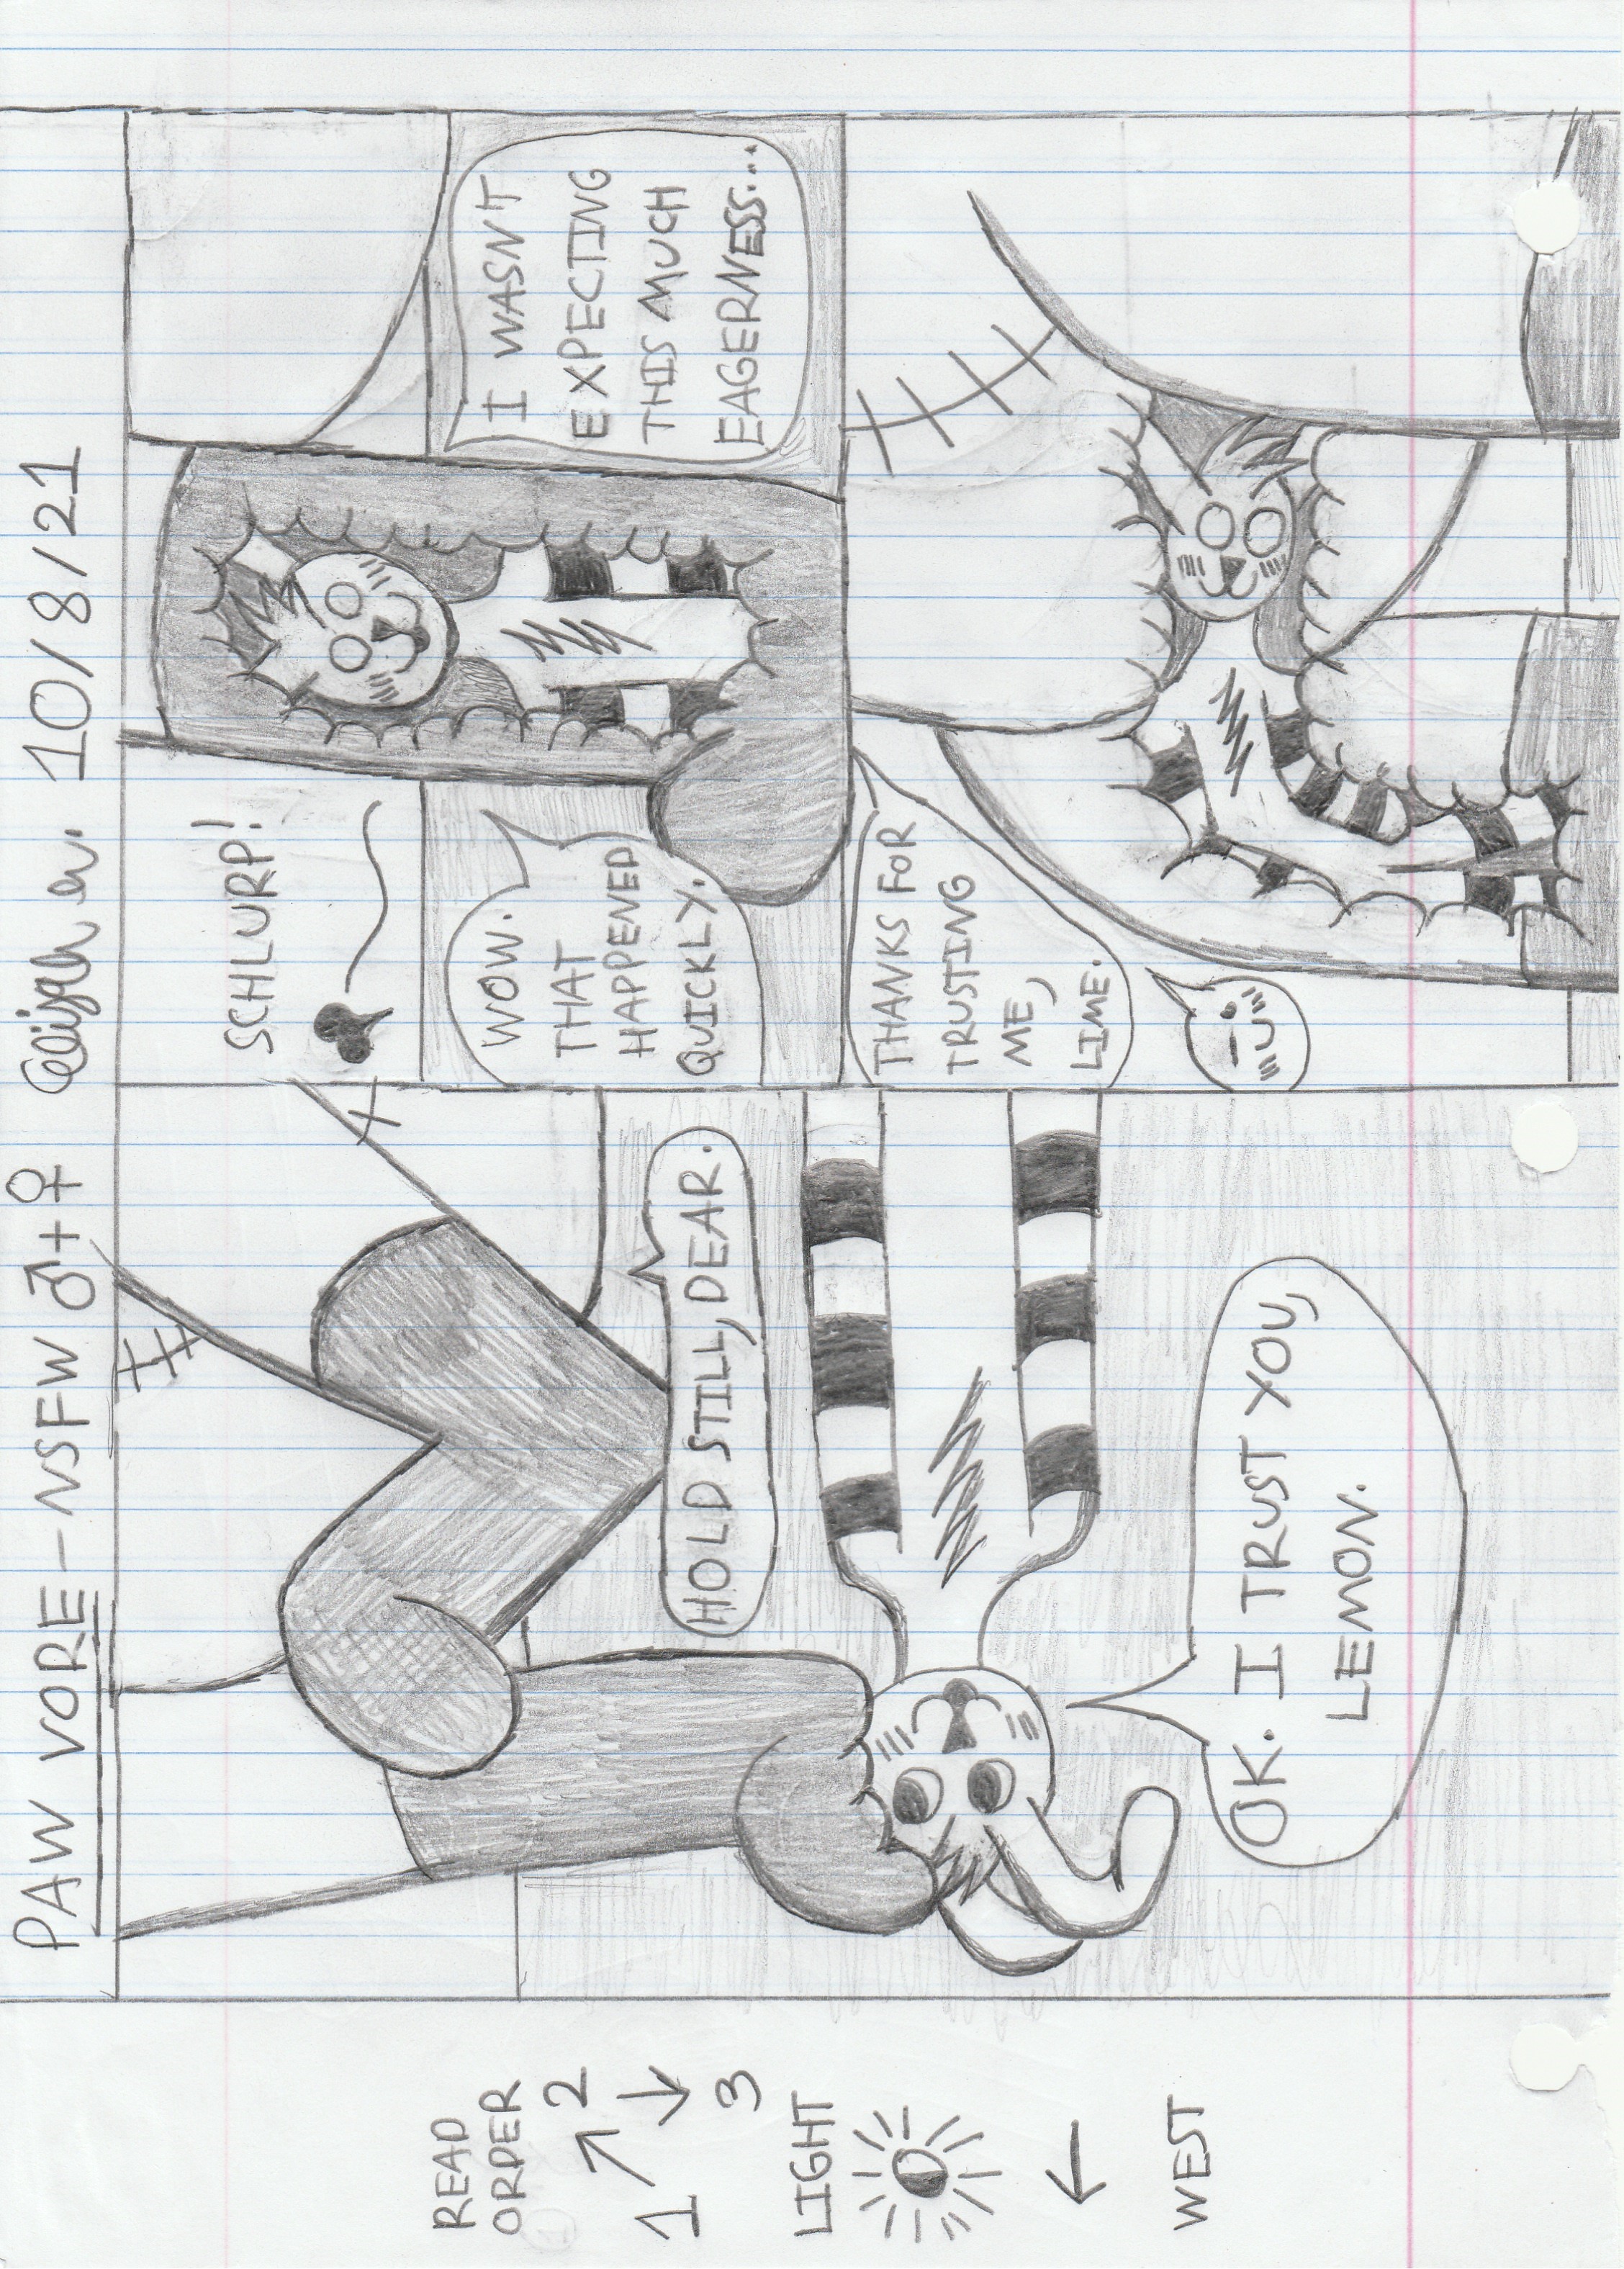 PAW VORE-NSFW ♂+♀ 10/8/21
READ
ORDER
1 → 2
↓
3
LIGHT
←
WEST
HOLD STILL, DEAR.
OK. I TRUST YOU,
LEMON.
SCHLURP!
WOW.
THAT
HAPPENED
QUICKLY.
I WASN'T
EXPECTING
THIS MUCH
EAGERNESS...
THANKS FOR
TRUSTING
ME,
LIME.